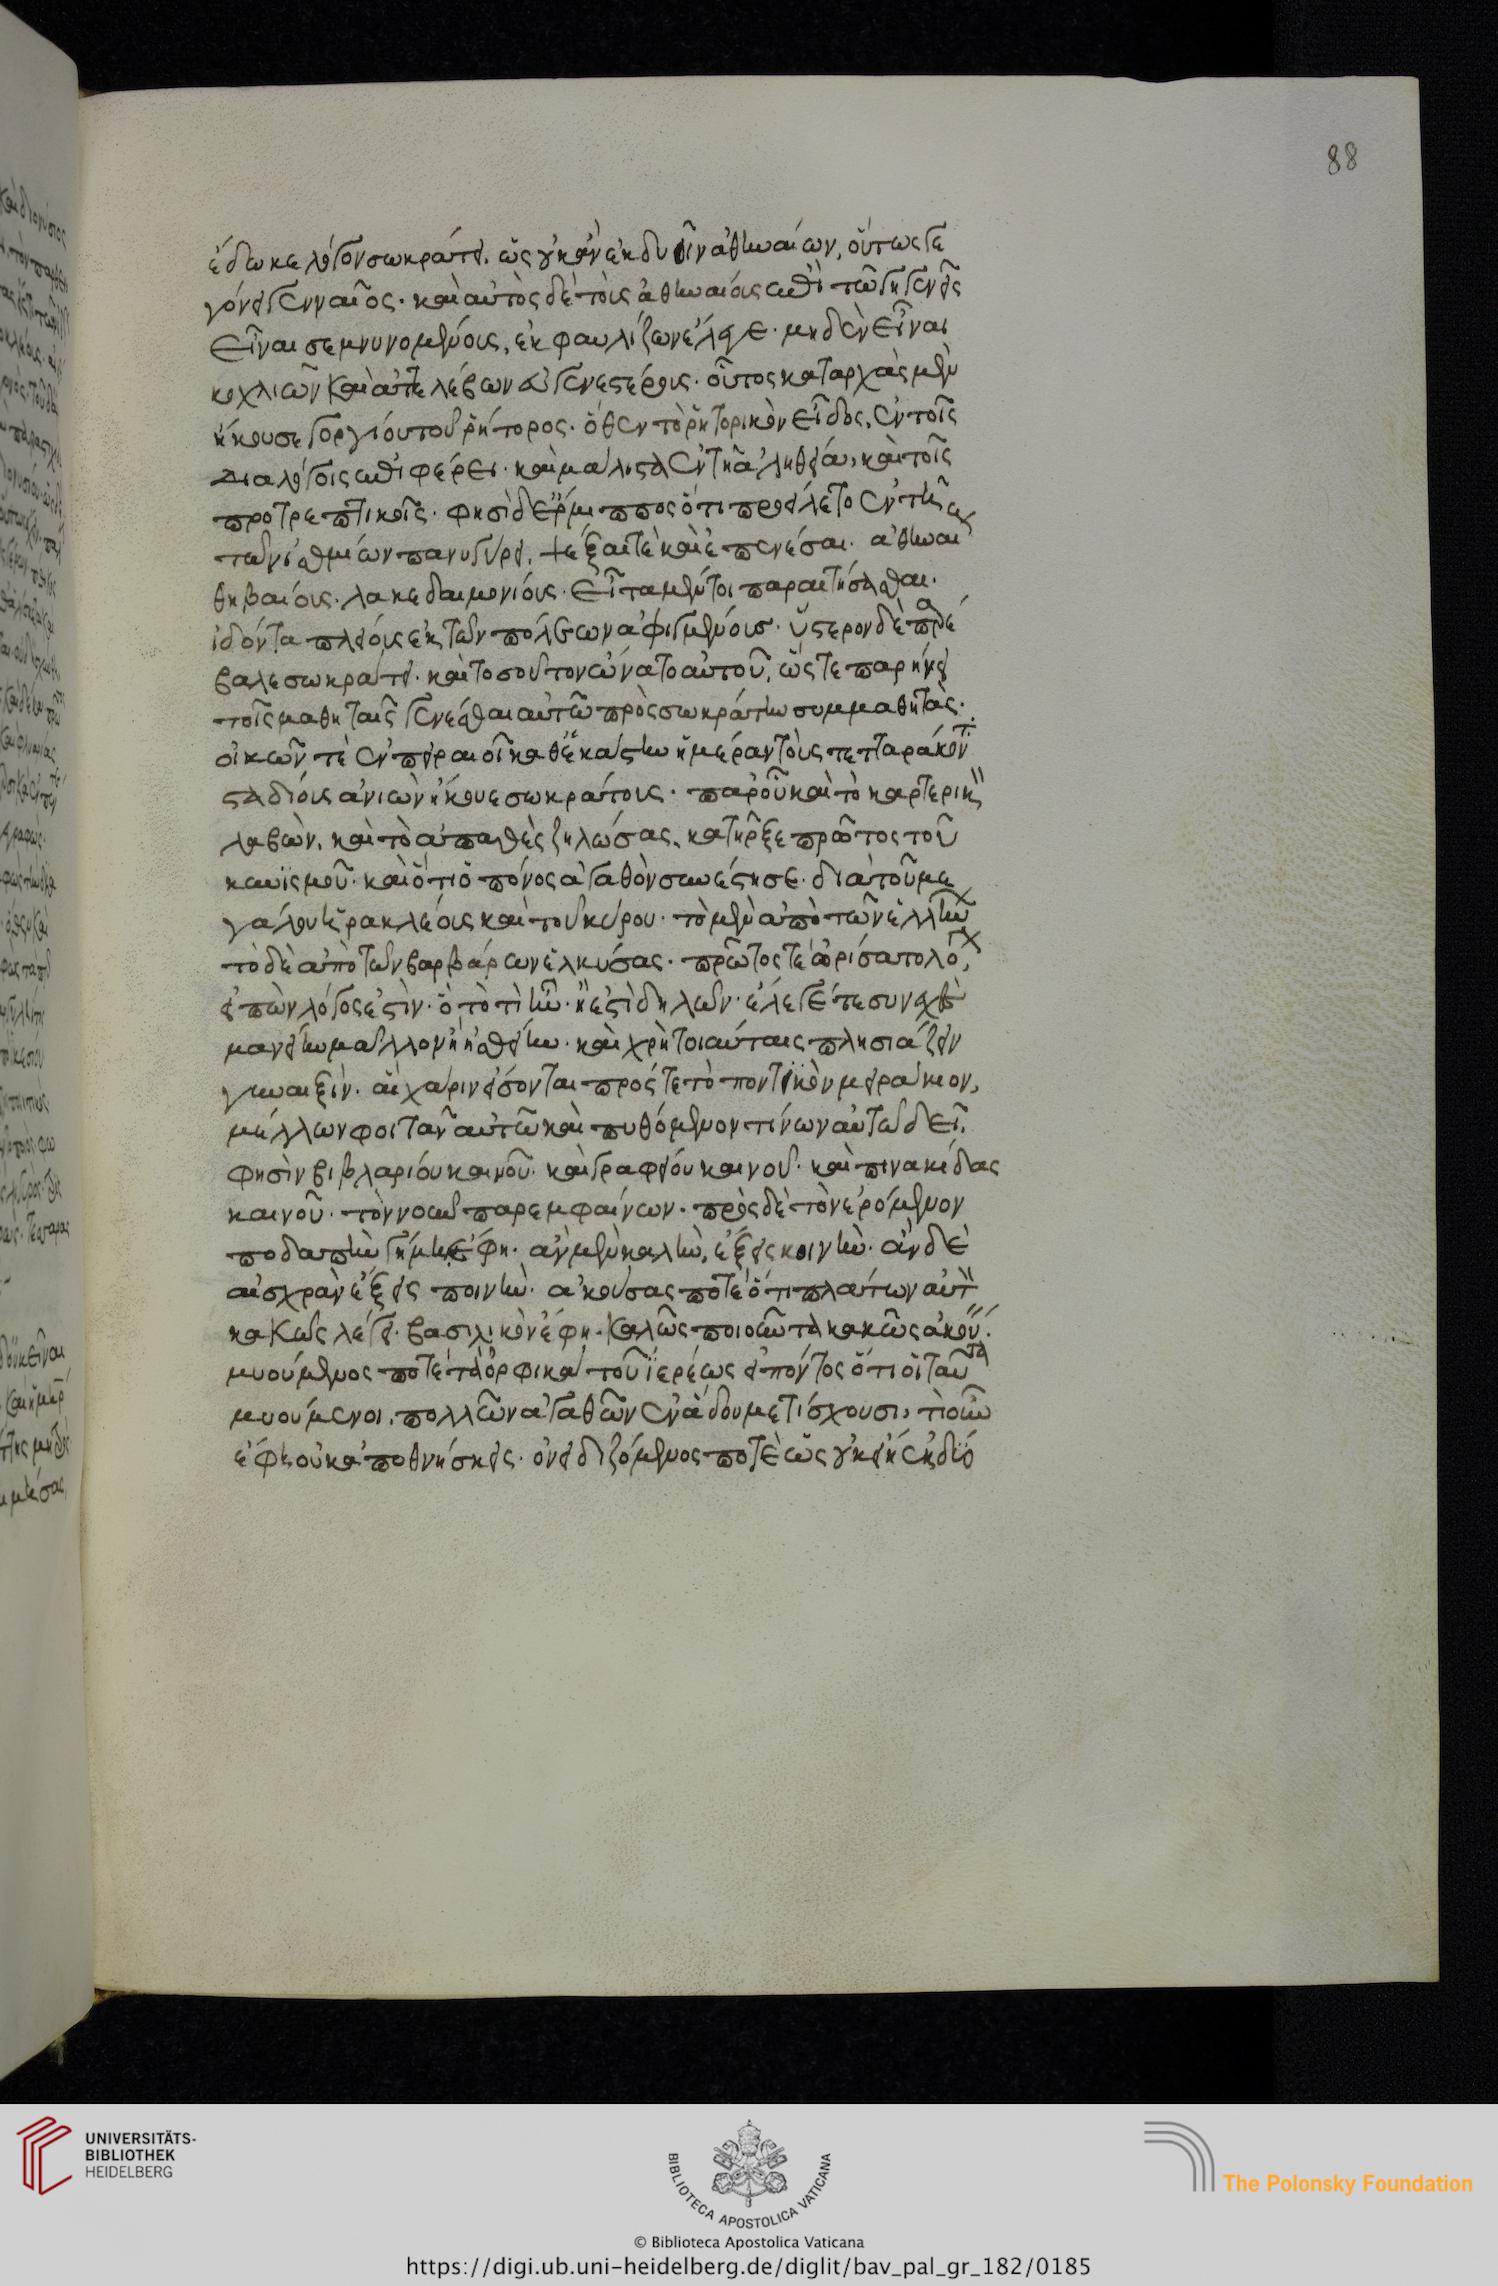 έδωκε λόγον σωκράτει. ὡς οὐκ ἂν ἐκ δυεῖν ἀθηναίων, οὕτως γε
γόνει γενναῖος. καὶ αὐτὸς δὲ τοῖς ἀθηναίοις ἐπὶ τῶ γηγενεῖς
εἶναι σεμνυνομένοις, ἐκφαυλίζων ἔλεγε. μηδὲν εἶναι
κοχλιῶν καὶ ἀττελέβων εὐγενεστέρους. οὗτος καταρχὰς μὲν
ἤκουσε γοργίου τοῦ ῥήτορος. ὅθεν τὸ ῥητορικὸν εἶδος, ἐν τοῖς
διαλόγοις ἐπιφέρει. καὶ μάλιστα ἐν τῆ ἀληθεία, καὶ τοῖς
προτρεπτικοῖς. φησὶ δ' ἕρμιππος ὅτι προείλετο ἐν τῆ
τῶν ἰσθμίων πανηγύρει. ψέξαι τὲ καὶ ἐπαινέσαι. ἀθηναί
θηβαίους. λακεδαιμονίους. εἶτα μέντοι παραιτήσασθαι.
ἰδόντα πλείους ἐκ τῶν πόλεων ἀφιγμένους. ὕστερον δὲ παρέ
βαλε σωκράτει. καὶ τοσοῦτον ὤνατο αὐτοῦ, ὥστε παρήνει
τοῖς μαθηταῖς γενέσθαι αὐτῶ πρὸς σωκράτην συμμαθητάς.
οἰκῶν τὲ ἐν πειραιοῖ καθ' ἑκάστην ἡμέραν τοὺς τετταράκοντ
σταδίους ἀνιὼν ἤκουε σωκράτους. παρ' οὗ καὶ τὸ καρτερικὸν
λαβὼν, καὶ τὸ ἀπαθὲς ζηλώσας, κατῆρξε πρῶτος τοῦ
κυνϊσμοῦ. καὶ ὅτι ὁ πόνος ἀγαθὸν συνέστησε. διὰ τοῦ με
γάλου ἡρακλέους καὶ τοῦ κύρου. τὸ μὲν ἀπὸ τῶν ἑλλήνων
τὸ δὲ ἀπὸ τῶν βαρβάρων ἑλκύσας. πρῶτος τὲ ὡρίσατο λόγον,
εἰπὼν λόγος ἐστὶν. ὁ τὸ τί ἦν. ἢ ἐστὶ δηλῶν. ἔλεγέ τε συνεχὲς
μανείην μᾶλλον ἢ ἡσθείην. καὶ χρὴ τοιαύταις πλησιάζειν
γυναιξὶν. αἳ χάριν εἴσονται πρός τε τὸ ποντικὸν μειράκιον,
μέλλων φοιτᾶν αὐτῶ καὶ πυθόμενον τίνων αὐτῶ δεῖ.
φησὶν βιβλαρίου καινοῦ. καὶ γραφείου καινοῦ. καὶ πινακίδας
καινοῦ. τὸν νοῦν παρεμφαίνων. πρὸς δὲ τὸν ἐρόμενον
ποδαπὴν γήμη ἔφη. ἂν μὲν καλὴν, ἕξεις κοινὴν. ἂν δὲ
αἰσχρὰν ἕξεις ποινὴν. ἀκούσας ποτὲ ὅτι πλάτων αὐτὸν
κακῶς λέγει. βασιλικὸν ἔφη. καλῶς ποιοῦντα κακῶς ἀκούειν.
μυούμενος ποτὲ τὰ ὀρφικὰ τοῦ ἱερέως εἰπόντος ὅτι οἱ ταῦτα
μυούμενοι, πολλῶν ἀγαθῶν ἐν ἅδου μετίσχουσι, τί οὖν
ἔφη οὐκ ἀποθνήσκεις. ὀνειδιζόμενος ποτὲ ὡς οὐκ εἴη ἐκ δύο
88
UNIVERSITÄTS-
BIBLIOTHEK
HEIDELBERG
BIBLIOTECA APOSTOLICA VATICANA
The Polonsky Foundation
© Biblioteca Apostolica Vaticana
https://digi.ub.uni-heidelberg.de/diglit/bav_pal_gr_182/0185